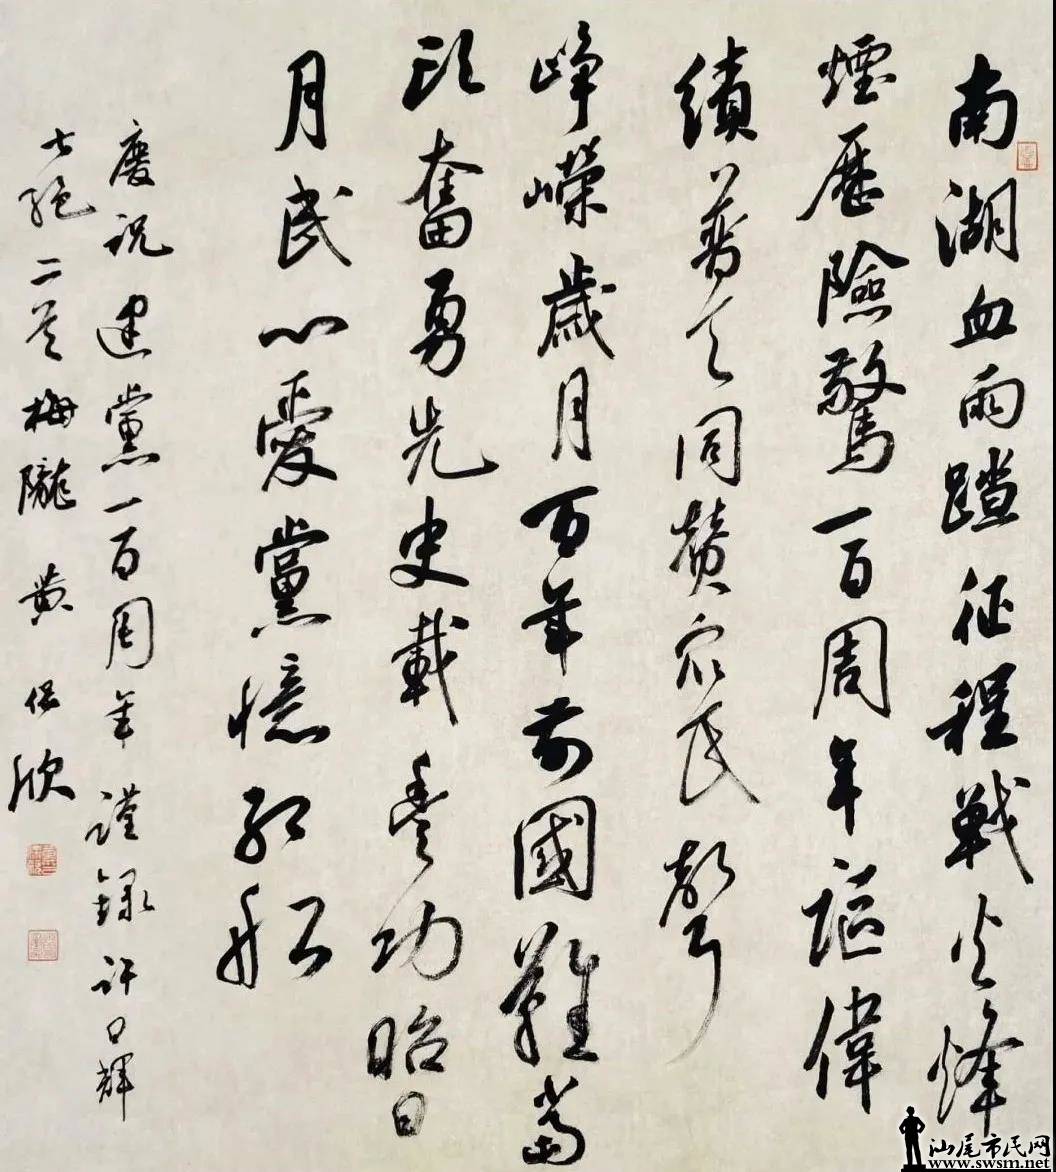 南湖血雨踏征程戰火烽
煙歷險驚一百周年謳偉
績普天同贊眾民聲
崢嶸歲月百年前國難當
頭奮勇先史載豐功昭日
月民心愛黨憶紅船
慶祝建黨一百周年謹錄許日輝
七絕二首梅隴黃保欣
汕尾市民网
www.swsm.net